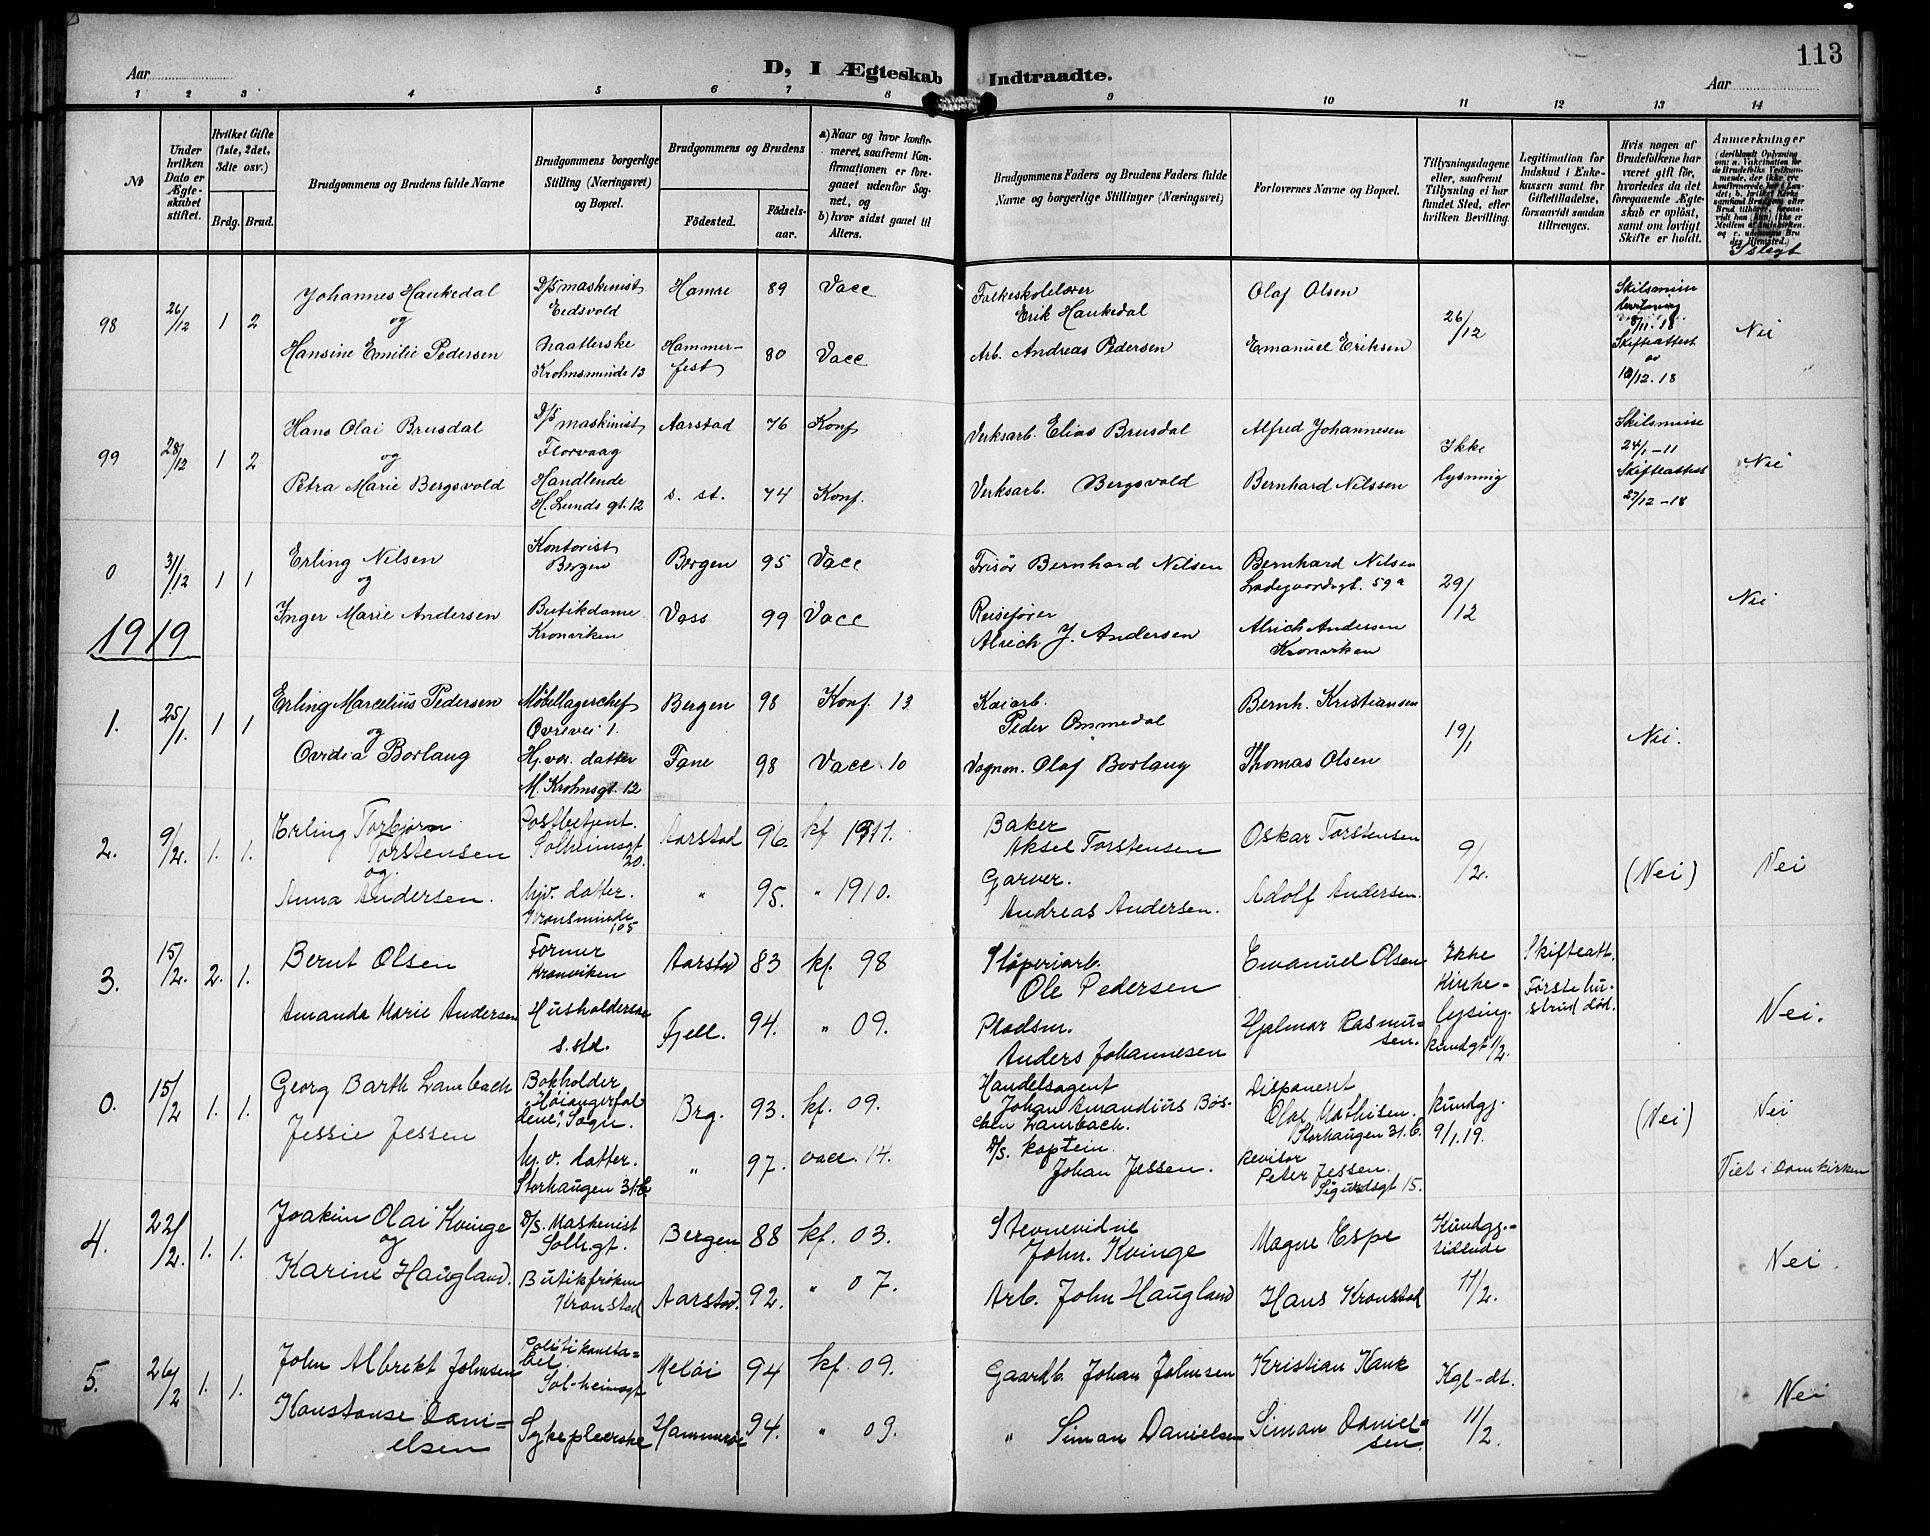 113
Aar
D, I Ægteskab Indtraadte.
Aar
1 2 3 4 5 6 7 8 9 10 11 12 13 14
No
Under hvilken Dato er Ægteskabet stiftet.
Hvilket Gifte (1ste, 2det, 3die osv.)
Brdg. Brud.
Brudgommens og Brudens fulde Navne
Brudgommens borgerlige Stilling (Næringsvei) og Bopæl.
Brudgommens og Brudens
Födested.
Födselsaar.
a) Naar og hvor konfirmeret, saafremt Konfirmationen er foregaaet udenfor Sognet, og
b) hvor sidst gaaet til Alters.
Brudgommens Faders og Brudens Faders fulde Navne og borgerlige Stillinger (Næringsvei)
Forlovernes Navne og Bopæl.
Tillysningsdagene eller, saafremt Tillysning ei har fundet Sted, efter hvilken Bevilling.
Legitimation for Indskud i Enkekassen samt for Giftetilladelse, forsaavidt saadan tiltrænges.
Hvis nogen af Brudefolkene har været gift för, hvorledes da det foregaaende Ægteskab er oplöst, samt om lovligt Skifte er holdt.
Anmærkninger
I slegt
98 26/12 1 2 Johannes Haukedal D/s maskinist Eidsvold Hamre 89 Vacc Folkeskolelærer Erik Haukedal Olaf Olsen 26/12 Skilsmisse 8/11.18 Nei
og
Hansine Emilie Pedersen Krohnsminde 13 Hammerfest 80 Vacc Arb. Andreas Pedersen Emanuel Eriksen Skifteattest av 10/12.18
99 28/12 1 2 Hans Olai Brusdal D/s maskinist Florvaag Aarstad 76 Konf Verksarb. Elias Brusdal Alfred Johannesen Ikke lysning Skilsmisse 24/1-11 Nei
og
Petra Marie Bergsvold Handlende H. Lunds gt. 12 s. st. 74 Konf. Verksarb. Bergsvold Bernhard Nilssen Skifteattest 27/12-18
0 31/12 1 1 Erling Nilsen Kontorist Bergen Bergen 95 Vacc Frisør Bernhard Nilsen Bernhard Nilsen Ladegaardsgt. 59a 29/12 Nei
og
Inger Marie Andersen Butikdame Kronviken Voss 99 Vacc Reisefører Alrich J. Andersen Alrich Andersen Kronviken
1919
1. 25/1. 1 1 Erling Marcelius Pedersen Møbellagerchef Øvrevei 1. Bergen 98 Konf. 13 Kaiarb. Peder Ommedal Bernh. Kristiansen 19/1 Nei.
og
Ovidia Borlaug Hj.vær. datter M. Krohnsgt. 12 Fane 98 Vacc. 10 Vognm. Olaf Borlaug Thomas Olsen
2. 9/2. 1. 1. Erling Torbjørn Torstensen Postbetjent. Solheimsgt 20. Aarstad 96. kf 1911. Baker Aksel Torstensen Oskar Torstensen 9/2. (Nei) Nei
og
Anna Andersen. hjv. datter. Kronsminde 105 " 95. " 1910. Garver. Andreas Andersen. Adolf Andersen.
3. 15/2. 2. 1. Bernt Olsen Former Kronviken Aarstad 83 kf. 98 Støperiarb. Ole Pedersen Emanuel Olsen Ikke Kirkelysing. kundgt 1/2. Skifteatt. Første hustrud død. Nei.
Amanda Marie Andersen Husholderske s. std. Fjell. 94. " 09. Pladsm. Anders Johannesen Hjalmar Rasmusen.
0. 15/2 1. 1. Georg Barth Lambach Bokholder "Høiangerfaldene", Sogn. Brg. 93. kf. 09. Handelsagent Johan Amandius Böschen Lambach. Disponent Olaf Mathisen. Storhaugen 31.b. kundgj. 9/1.19. (Nei) Nei
Jessie Jessen hj. v. datter. Storhaugen 31b " 97. vacc. 14. D/s. kaptein. Johan Jessen. Revisor Peter Jessen. Sigurdsgt 15. Viet i Domkirken
4. 22/2. 1. 1. Joakim Olai Kvinge D/s. Maskenist Solh.gt. Bergen 88 kf. 03. Stevnevidne John. Kvinge Magne Espe Kundgj.-tidende 11/2. Nei.
og
Karine Haugland. Butikfrøken Kronstad Aarstad. 92. " 07. Arb. John Haugland Hans Kronstad
5. 26/2 1. 1. John Albrekt Johnsen Politikonstabel. Sol-heimsgt Meløi 94 kf. 09. Gaardb. Johan Johnsen Kristian Hauk Kgl-dt. 11/2. Nei
Konstanse Danielsen Sykepleerske Hammerøi 94. " 09. " Simon Danielsen Simon Danielsen